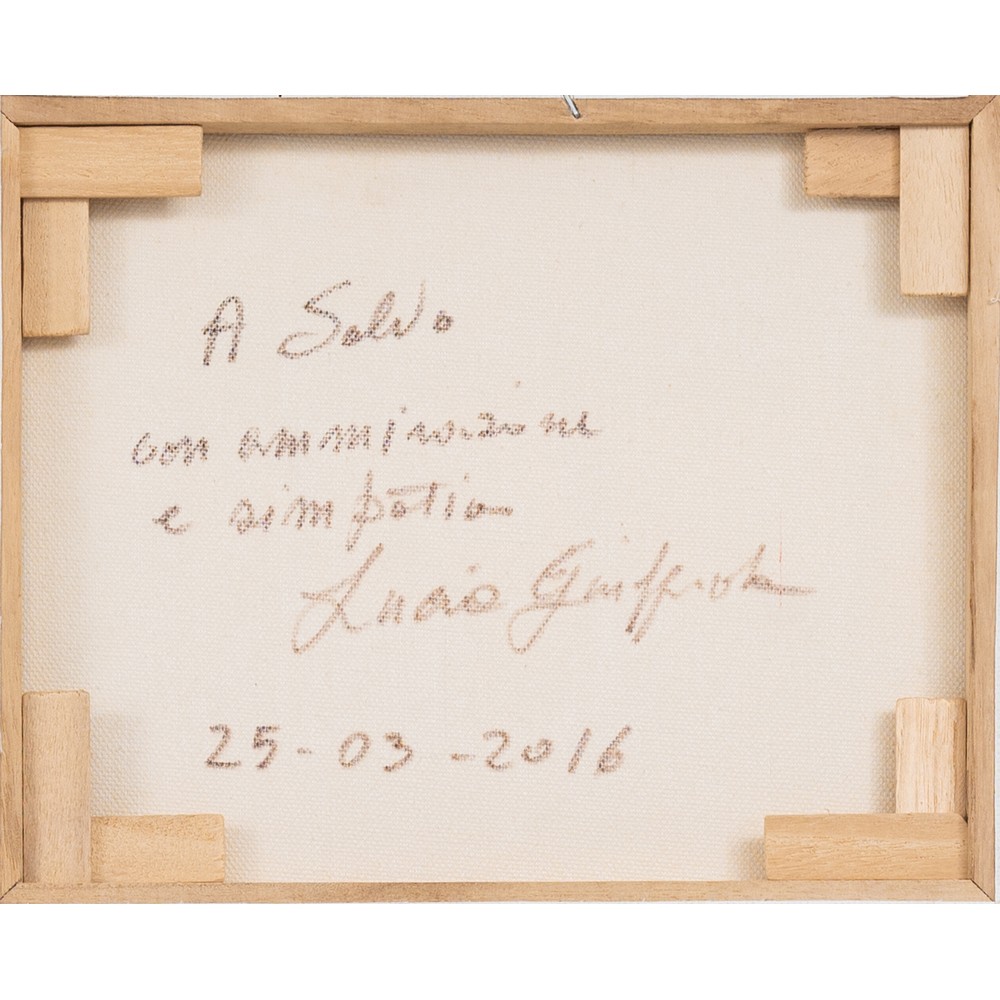 A Salvo
con ammirazione
e simpatia
Lucio
25-03-2016